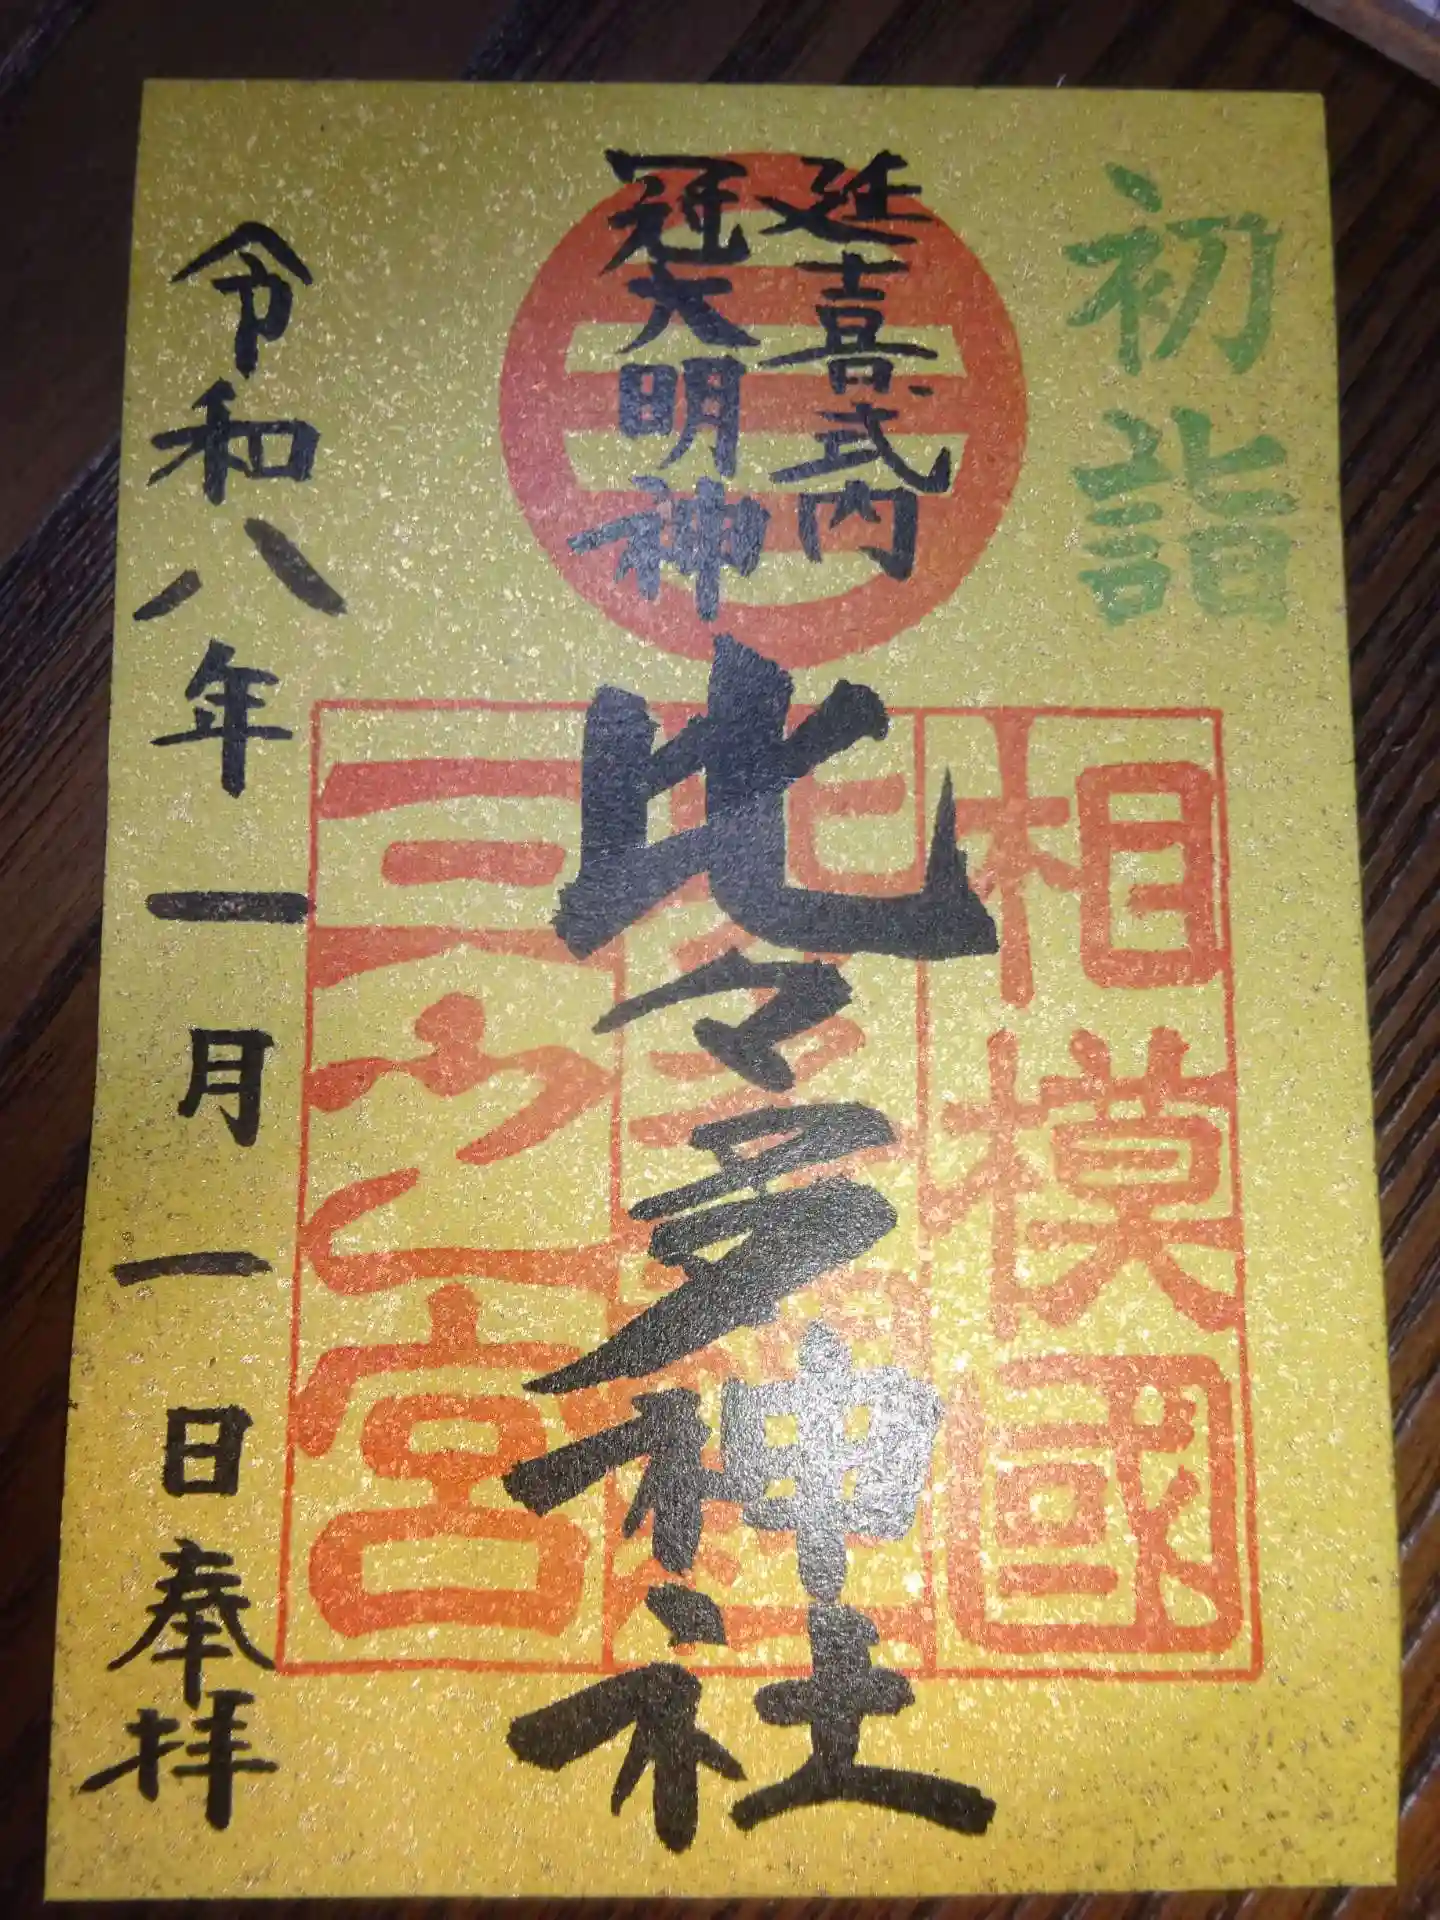 初詣
延喜式内
冠大明神
比々多神社
相模國
比々多神社
三之宮
令和八年一月一日奉拝